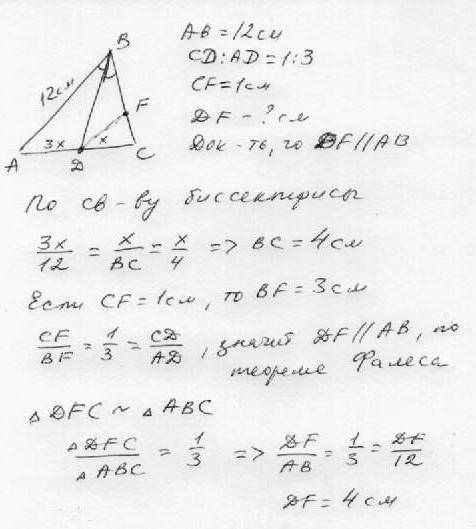 AB = 12 см
CD : AD = 1 : 3
CF = 1 см
DF - ? см
Док-ть, го DF // AB
B
12 см
F
3x
x
A
D
C
По св-ву биссектрисы
3x/12 = x/BC = x/4 => BC = 4 см
Если CF = 1 см, то BF = 3 см
CF/BF = 1/3 = CD/AD, значит DF // AB, по
теореме Фалеса
△ DFC ~ △ ABC
△ DFC/△ ABC = 1/3 => DF/AB = 1/3 = DF/12
DF = 4 см